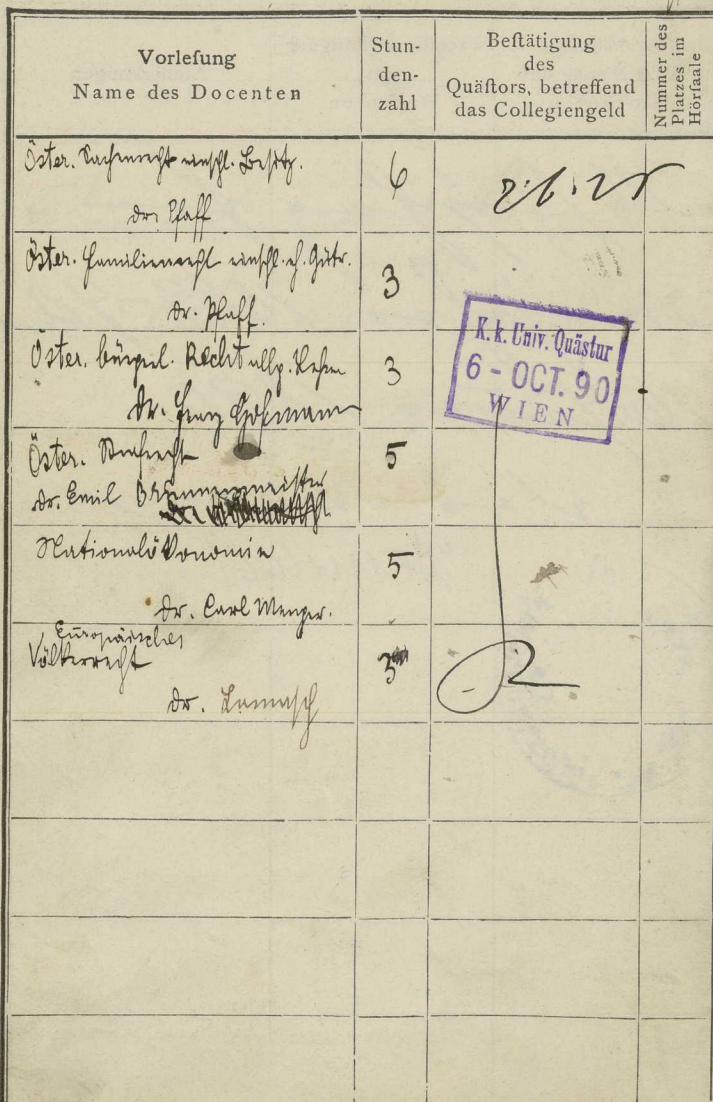 Vorleſung
Name des Docenten
Stun-
den-
zahl
Beſtätigung
des
Quäſtors, betreffend
das Collegiengeld
Nummer des
Platzes im
Hörſaale
Öster. Sachenrecht einschl. Besitz.
6
Dr. Pfaff
Öster. Familienrecht einschl. eh. Gütr.
3
Dr. Pfaff.
K. k. Univ. Quästur
6 - OCT. 90
WIEN
Öster. bürgerl. Recht allg. Lehren
3
Dr. Franz Hofmann
Öster. Strafrecht
5
Dr. Emil
Nationalökonomie
5
Dr. Carl Menger.
Europäisches
Völkerrecht
3
Dr. Lammasch